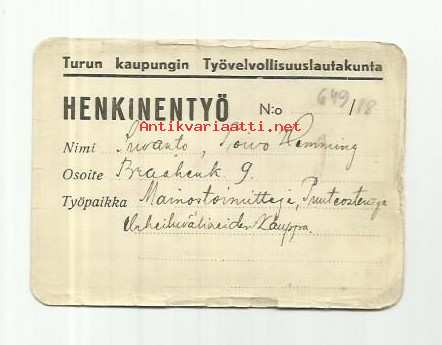 Turun kaupungin Työvelvollisuuslautakunta
HENKINENTYÖ N:o 649/18
Antikvariaatti.net
Nimi Suvanto, Toivo Flemming
Osoite Brahenk 9.
Työpaikka Mainostoimittaja,
Urheiluvälineiden Kauppa.